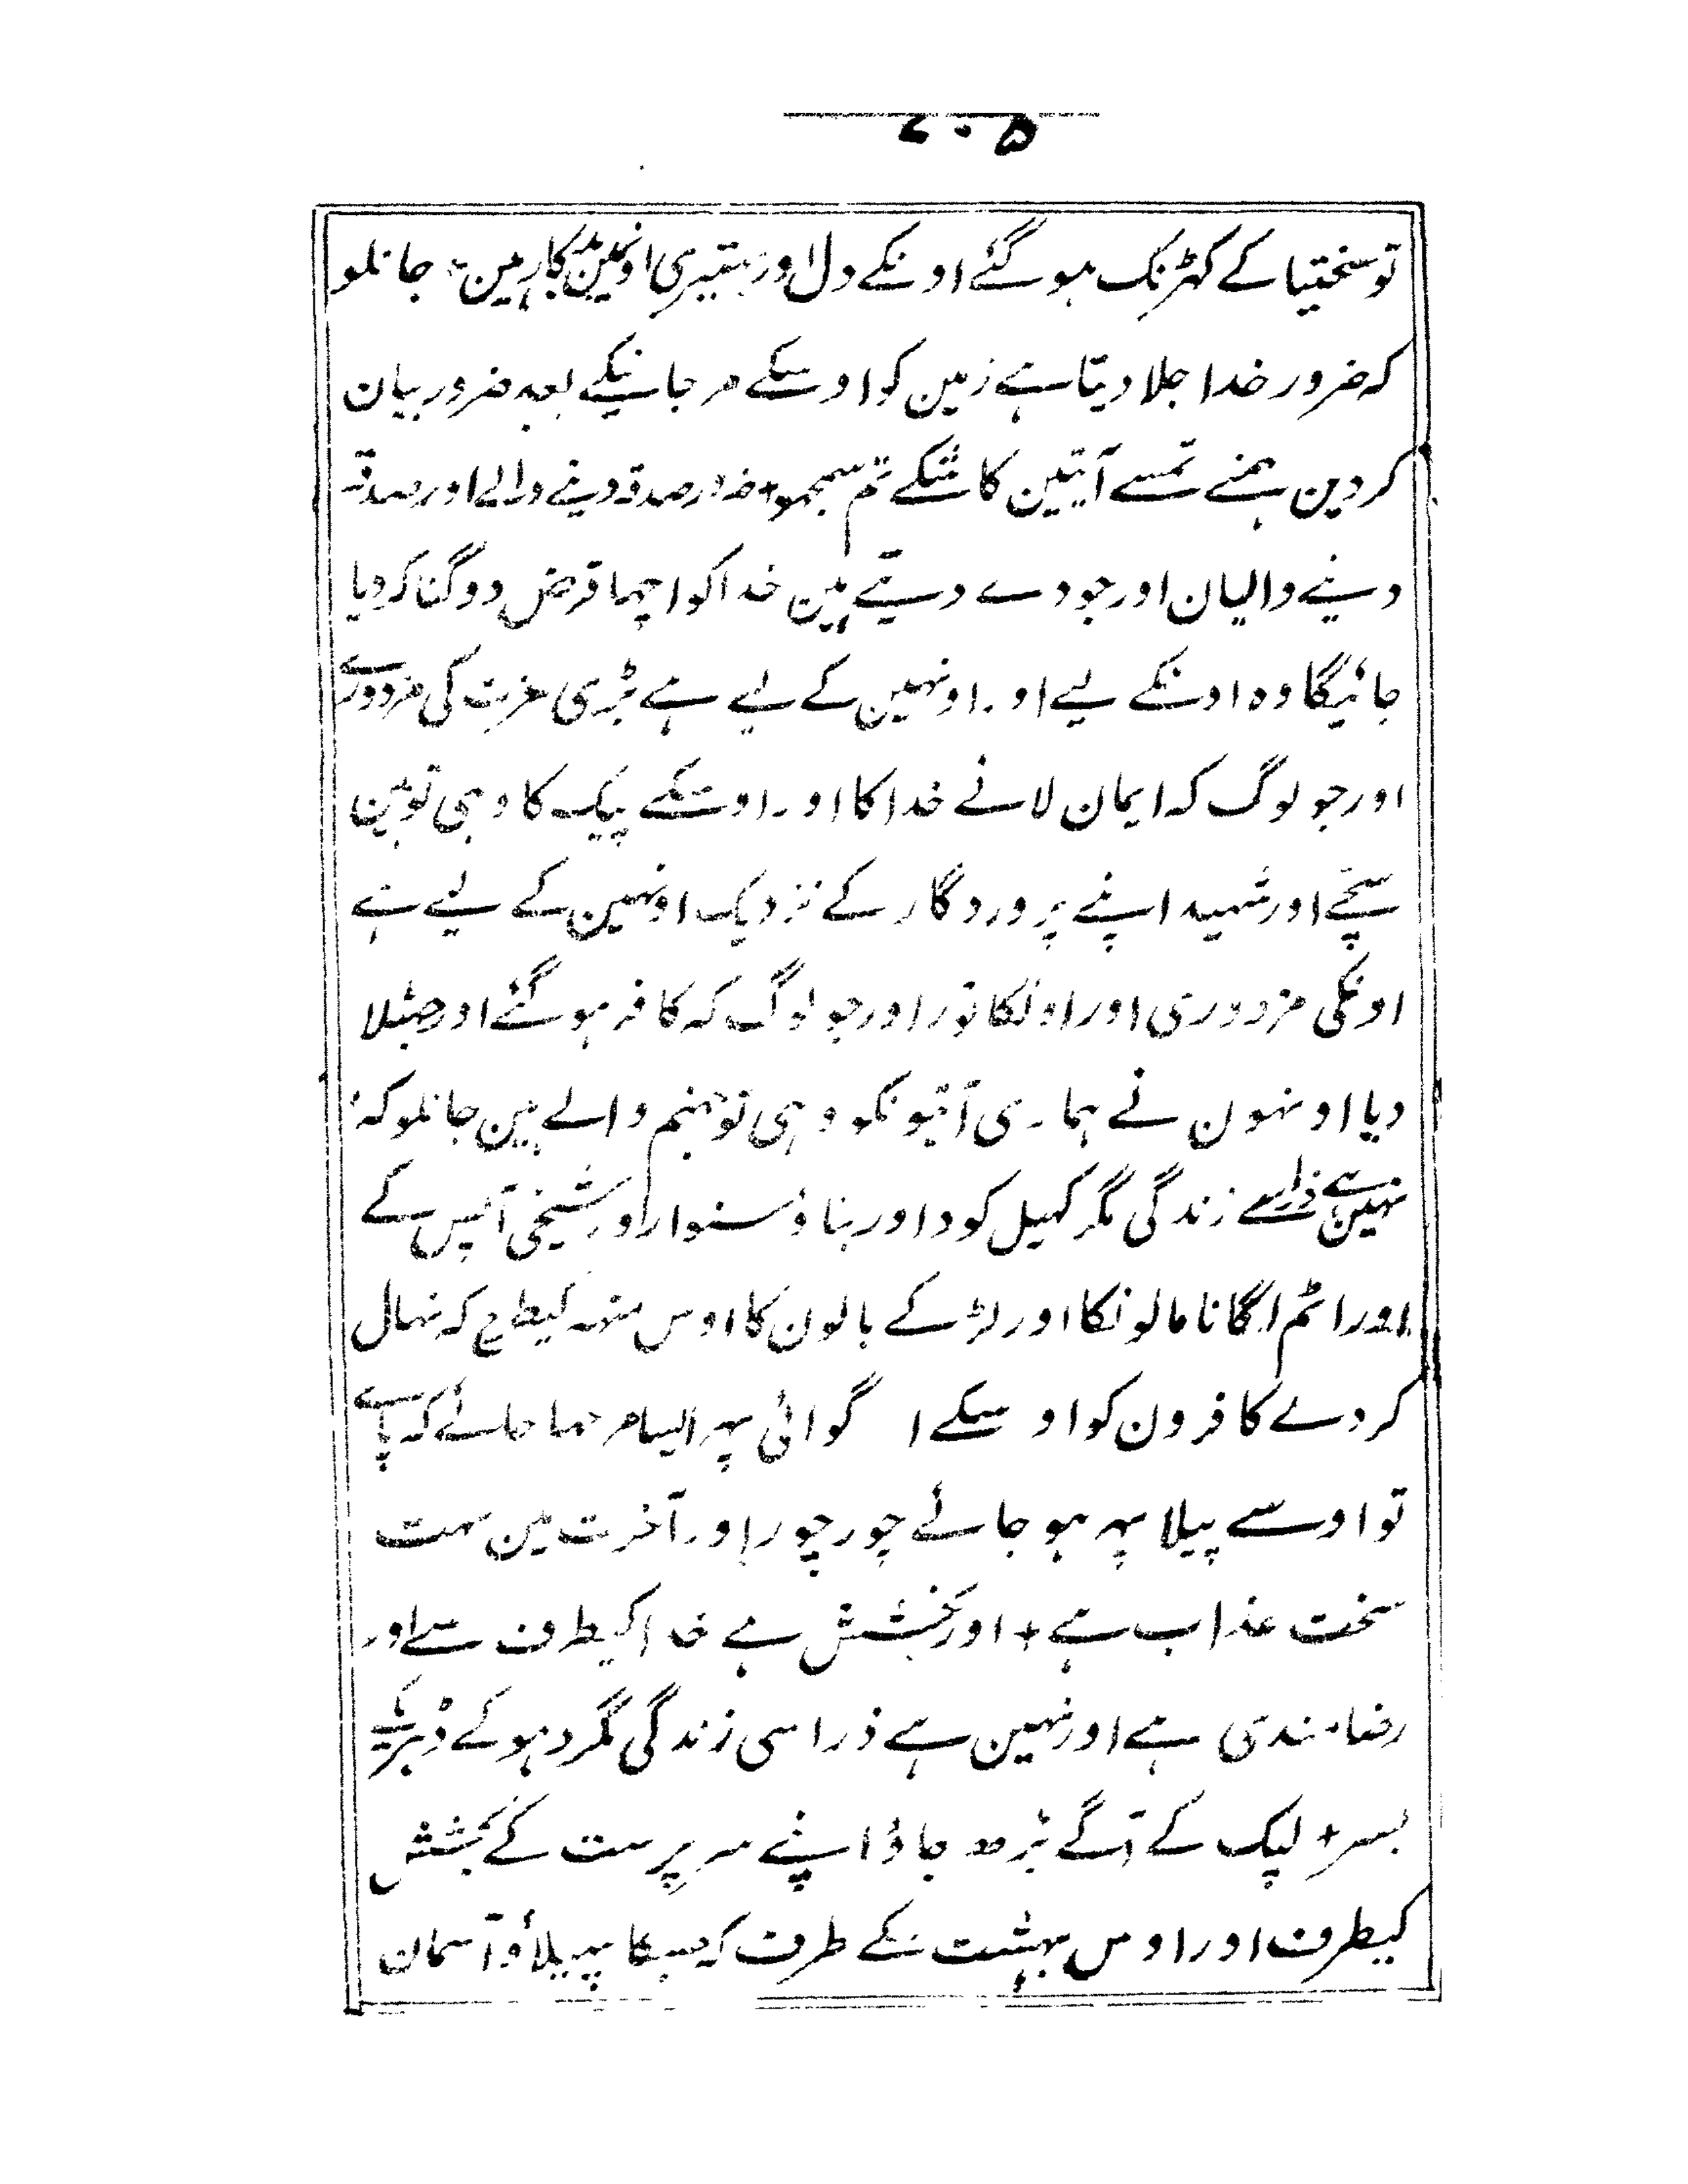 توسختیا کے کہڑنک ہو گئے اونکے دل اور بہتیری اونمین بدکار ہین + جانلو
کہ ضرور خدا جلا دیتا ہے زمین کو اوسکے مر جانیکے بعد ضرور بیان
کر دین ہمنے تمسے آیتین کاشکے تم سمجھو + ضرور صدقہ دینے والے اور صدقہ
دینے والیان اور جو دے دیتے ہین خدا کو اچہا قرض دوگنا کر دیا
جائیگا وہ اونکے لیے اور اونہین کے لیے ہے بڑی عزت کی مزدوری
اور جو لوگ کہ ایمان لائے خدا کا اور اوسکے پیک کا وہی تو ہین
سچے اور شہید اپنے پروردگار کے نزدیک اونہین کے لیے ہے
اونکی مزدوری اور اونکا نور اور جو لوگ کہ کافر ہو گئے اور جہٹلا
دیا اونہون نے ہماری آیتونکو وہی تو جہنم والے ہین جانلو کہ
نہین ہے ذراسے زندگی مگر کہیل کود اور بناؤ سنوار اور شیخی آپس کے
اور اٹم لگانا مالونکا اور لڑکے بالون کا اوس منہہ کیطرح کہ نہال
کر دے کافرون کو اوسکے گوائی پہر ایسا مرجہا جائے کہ پاے
تو اوسے پیلا پہر ہو جائے چور چور اور آخرت مین بہت
سخت عذاب ہے + اور بخشش ہے خدا کیطرف سے اور
رضامندی ہے اور نہین ہے ذرا سی زندگی مگر دہوکے
بسر + لپک کے آگے بڑھ جاؤ اپنے سرپرست کے بخشش
کیطرف اور اوس بہشت کے طرف کہ جسکا پہیلاؤ آسمان